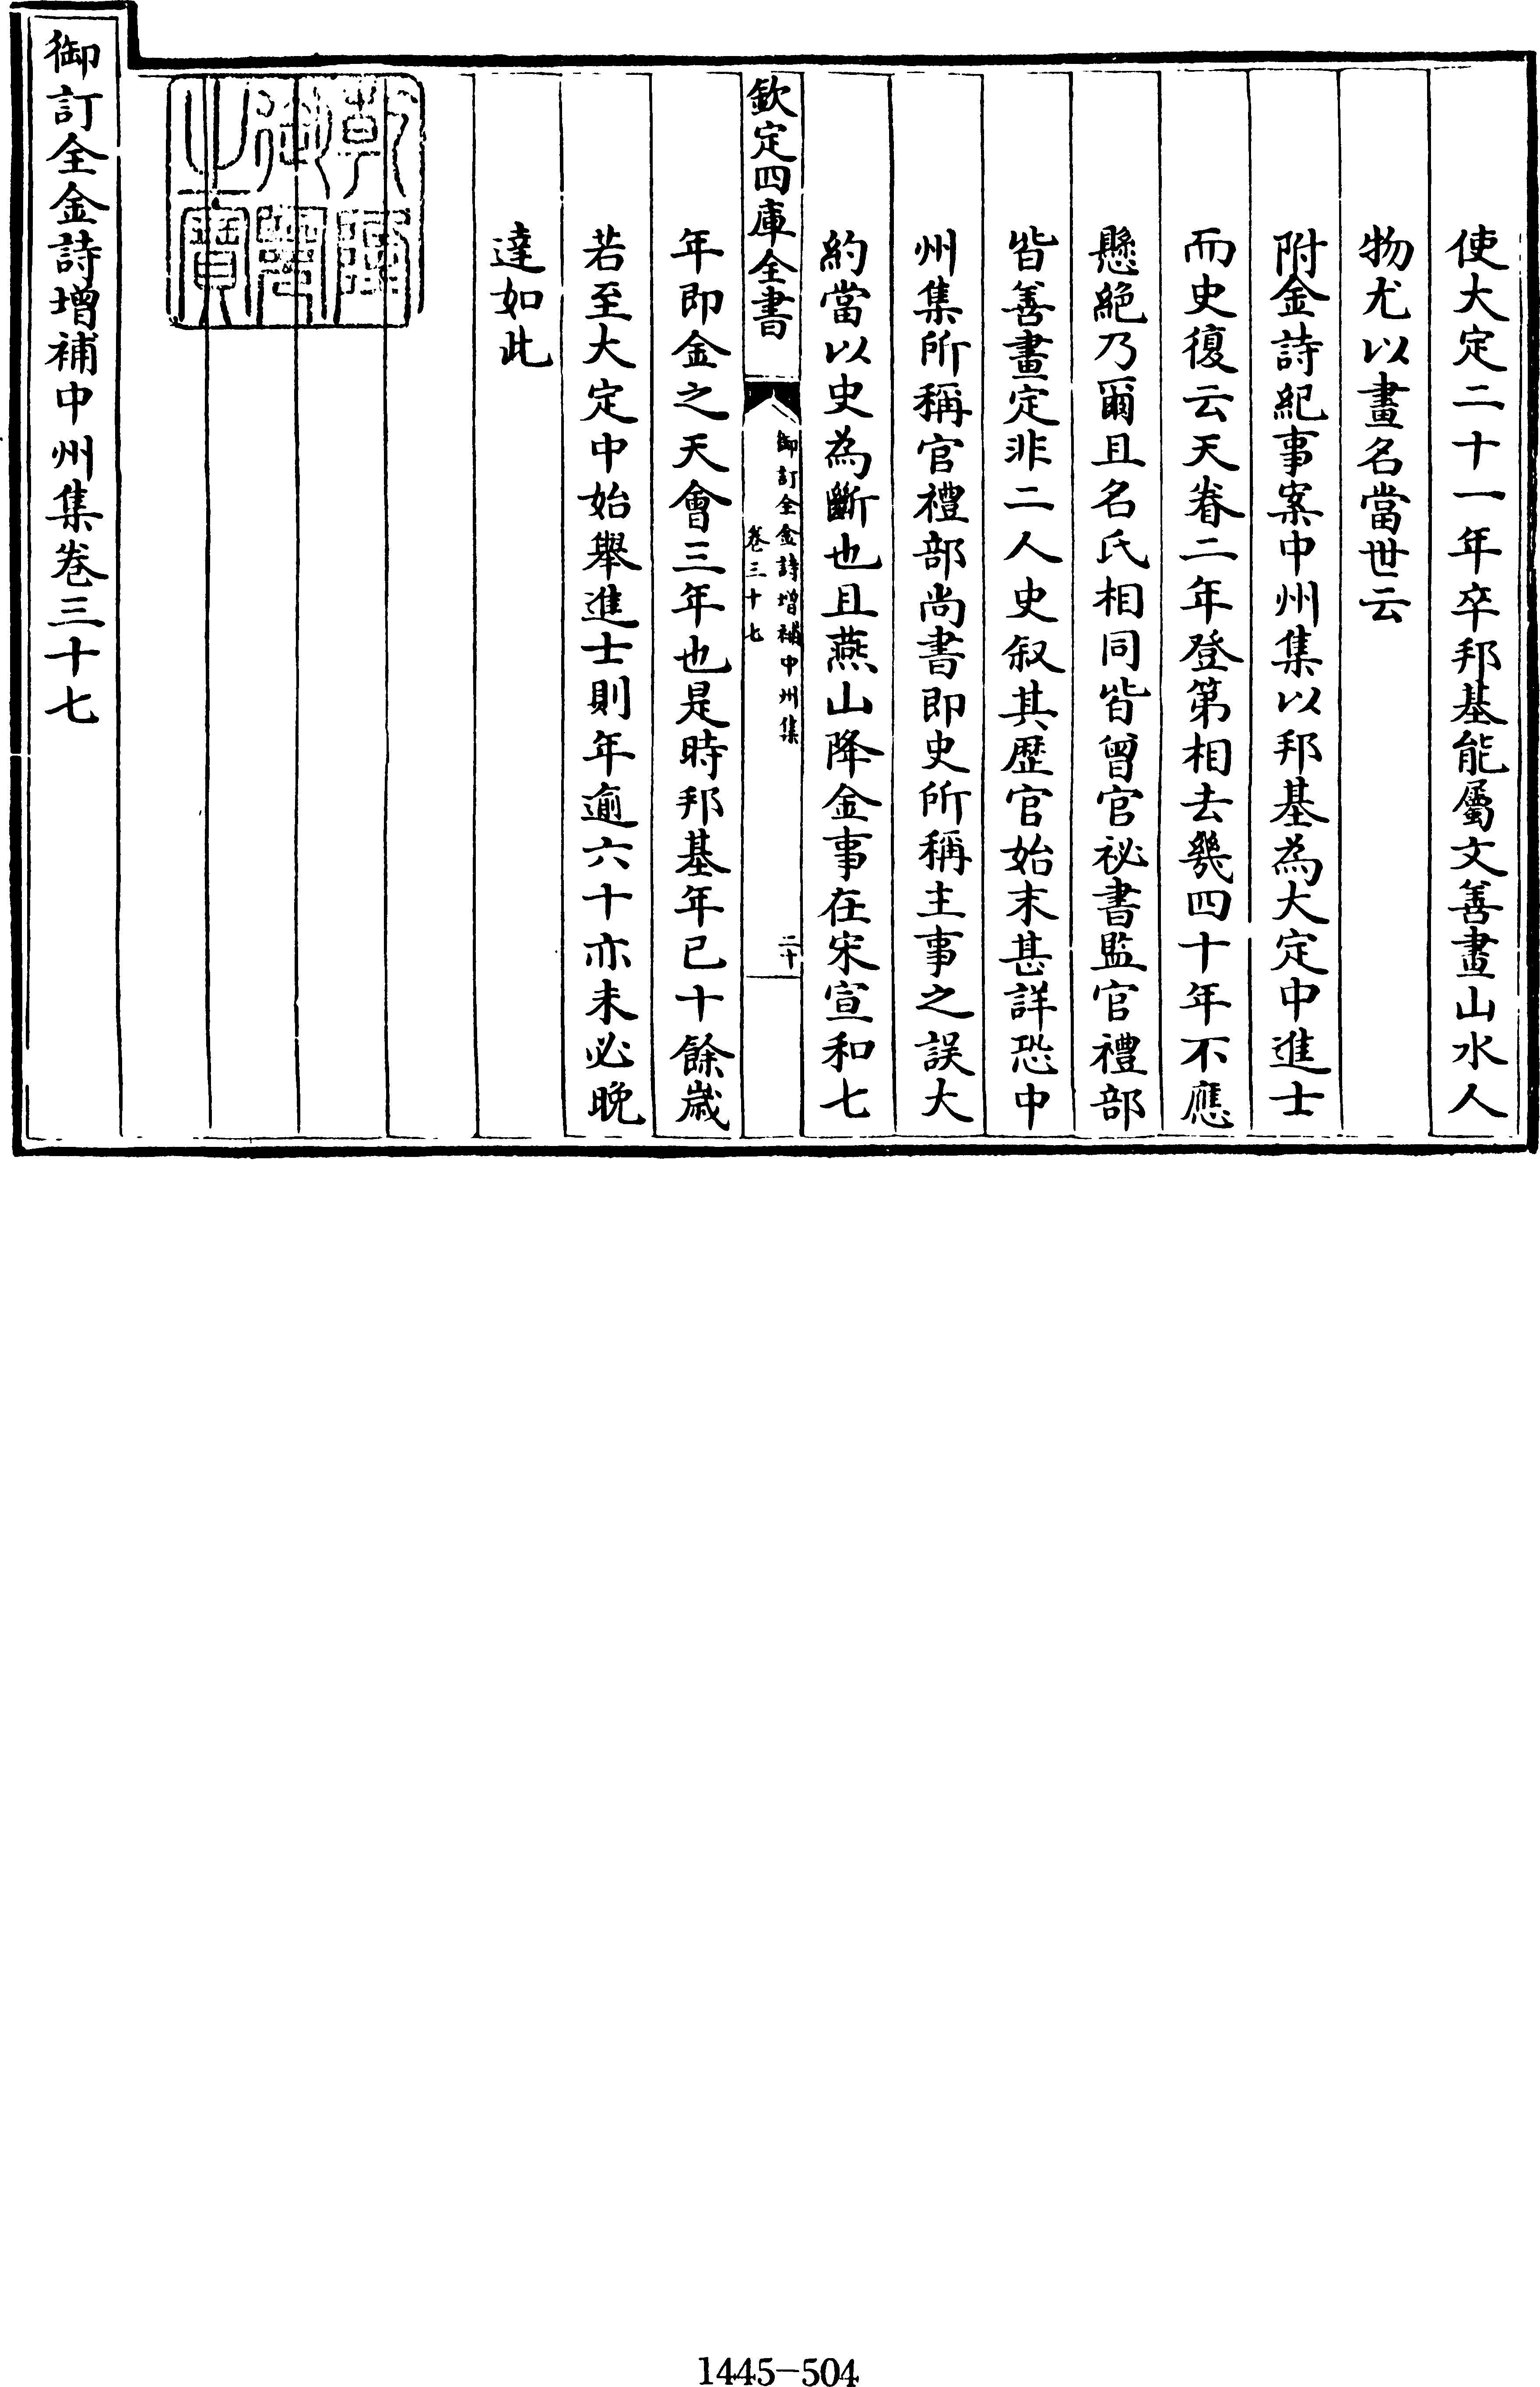 使大定二十一年卒邦基能屬文善畫山水人
物尤以畫名當世云
附金詩紀事案中州集以邦基為大定中進士
而史復云天眷二年登第相去幾四十年不應
懸絕乃爾且名氏相同皆曾官祕書監官禮部
皆善畫定非二人史叙其歷官始末甚詳恐中
州集所稱官禮部尚書即史所稱主事之誤大
約當以史為斷也且燕山降金事在宋宣和七
欽定四庫全書
御訂全金詩增補中州集
卷三十七
二十
年即金之天會三年也是時邦基年已十餘歲
若至大定中始舉進士則年逾六十亦未必晚
達如此
乾隆御覽之寶
御訂全金詩增補中州集卷三十七
1445-504